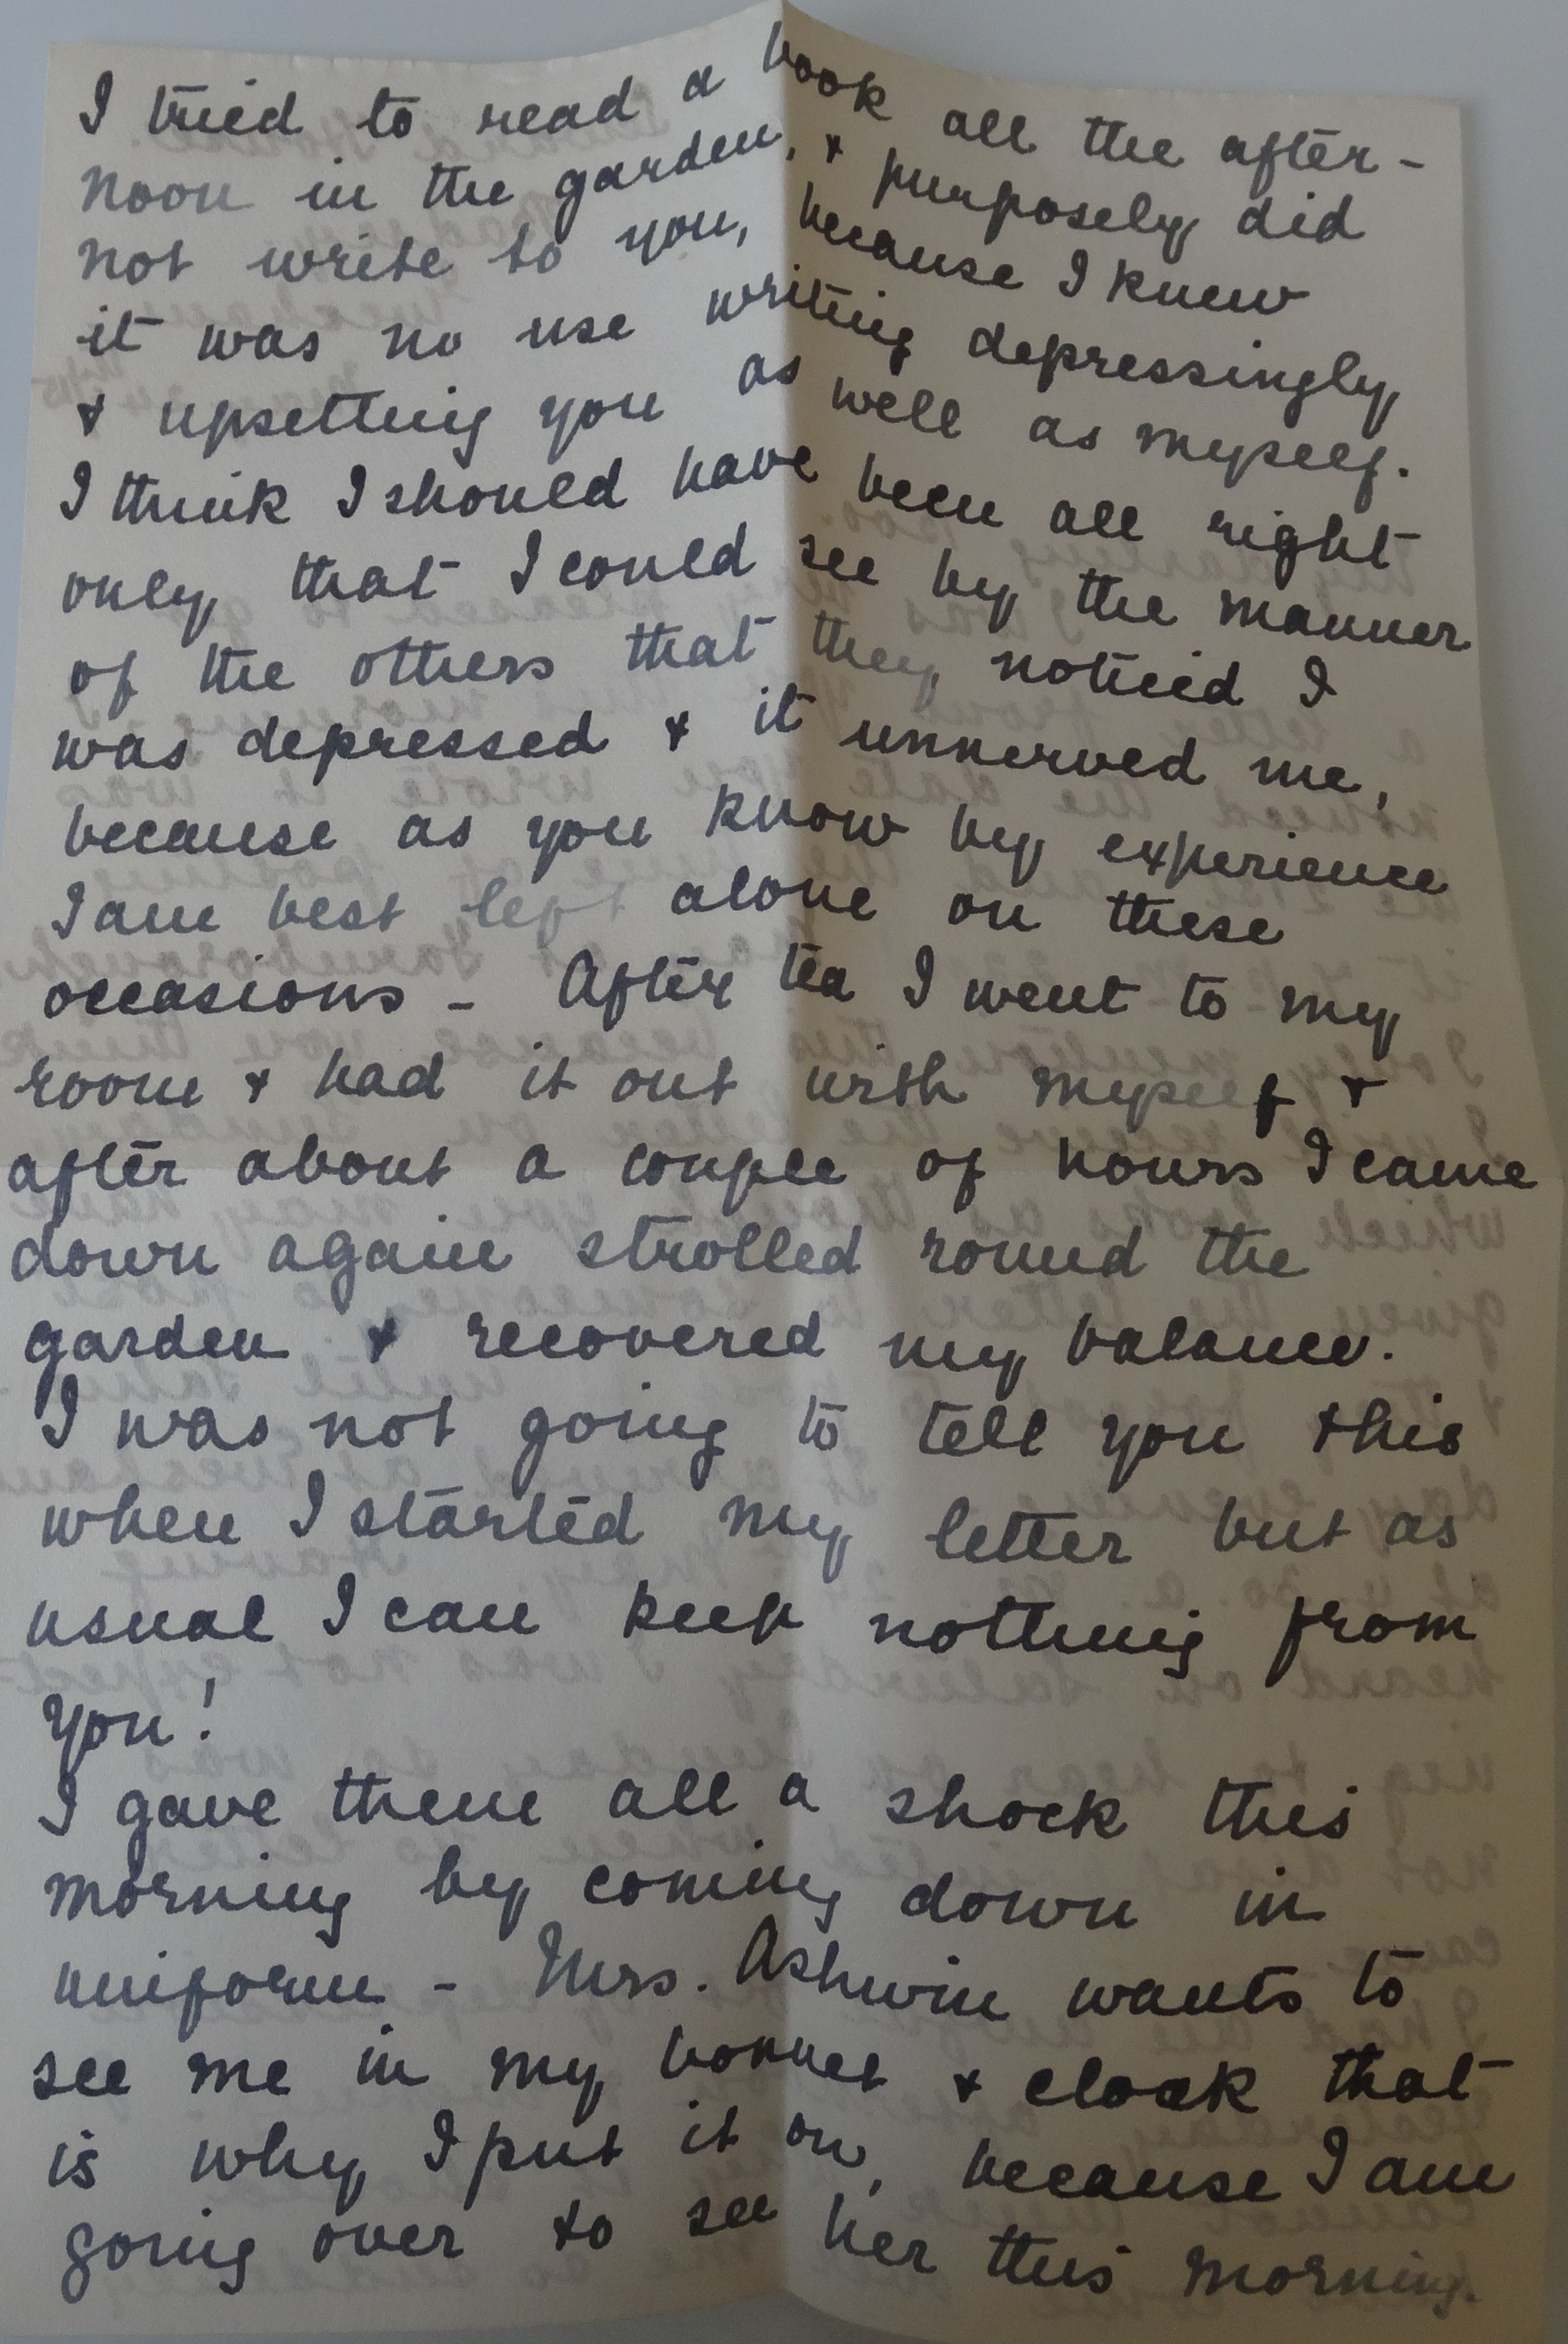 I tried to read a book all the after-
noon in the garden, & purposely did
not write to you, because I knew
it was no use writing depressingly
& upsetting you as well as myself.
I think I should have been all right
only that I could see by the manner
of the others that they noticed I
was depressed & it unnerved me,
because as you know by experience
I am best left alone on these
occasions - After tea I went to my
room & had it out with myself &
after about a couple of hours I came
down again strolled round the
garden & recovered my balance.
I was not going to tell you this
when I started my letter but as
usual I can keep nothing from
you!
I gave them all a shock this
morning by coming down in
uniform - Mrs. Ashwin wants to
see me in my bonnet & cloak that
is why I put it on, because I am
going over to see her this morning.